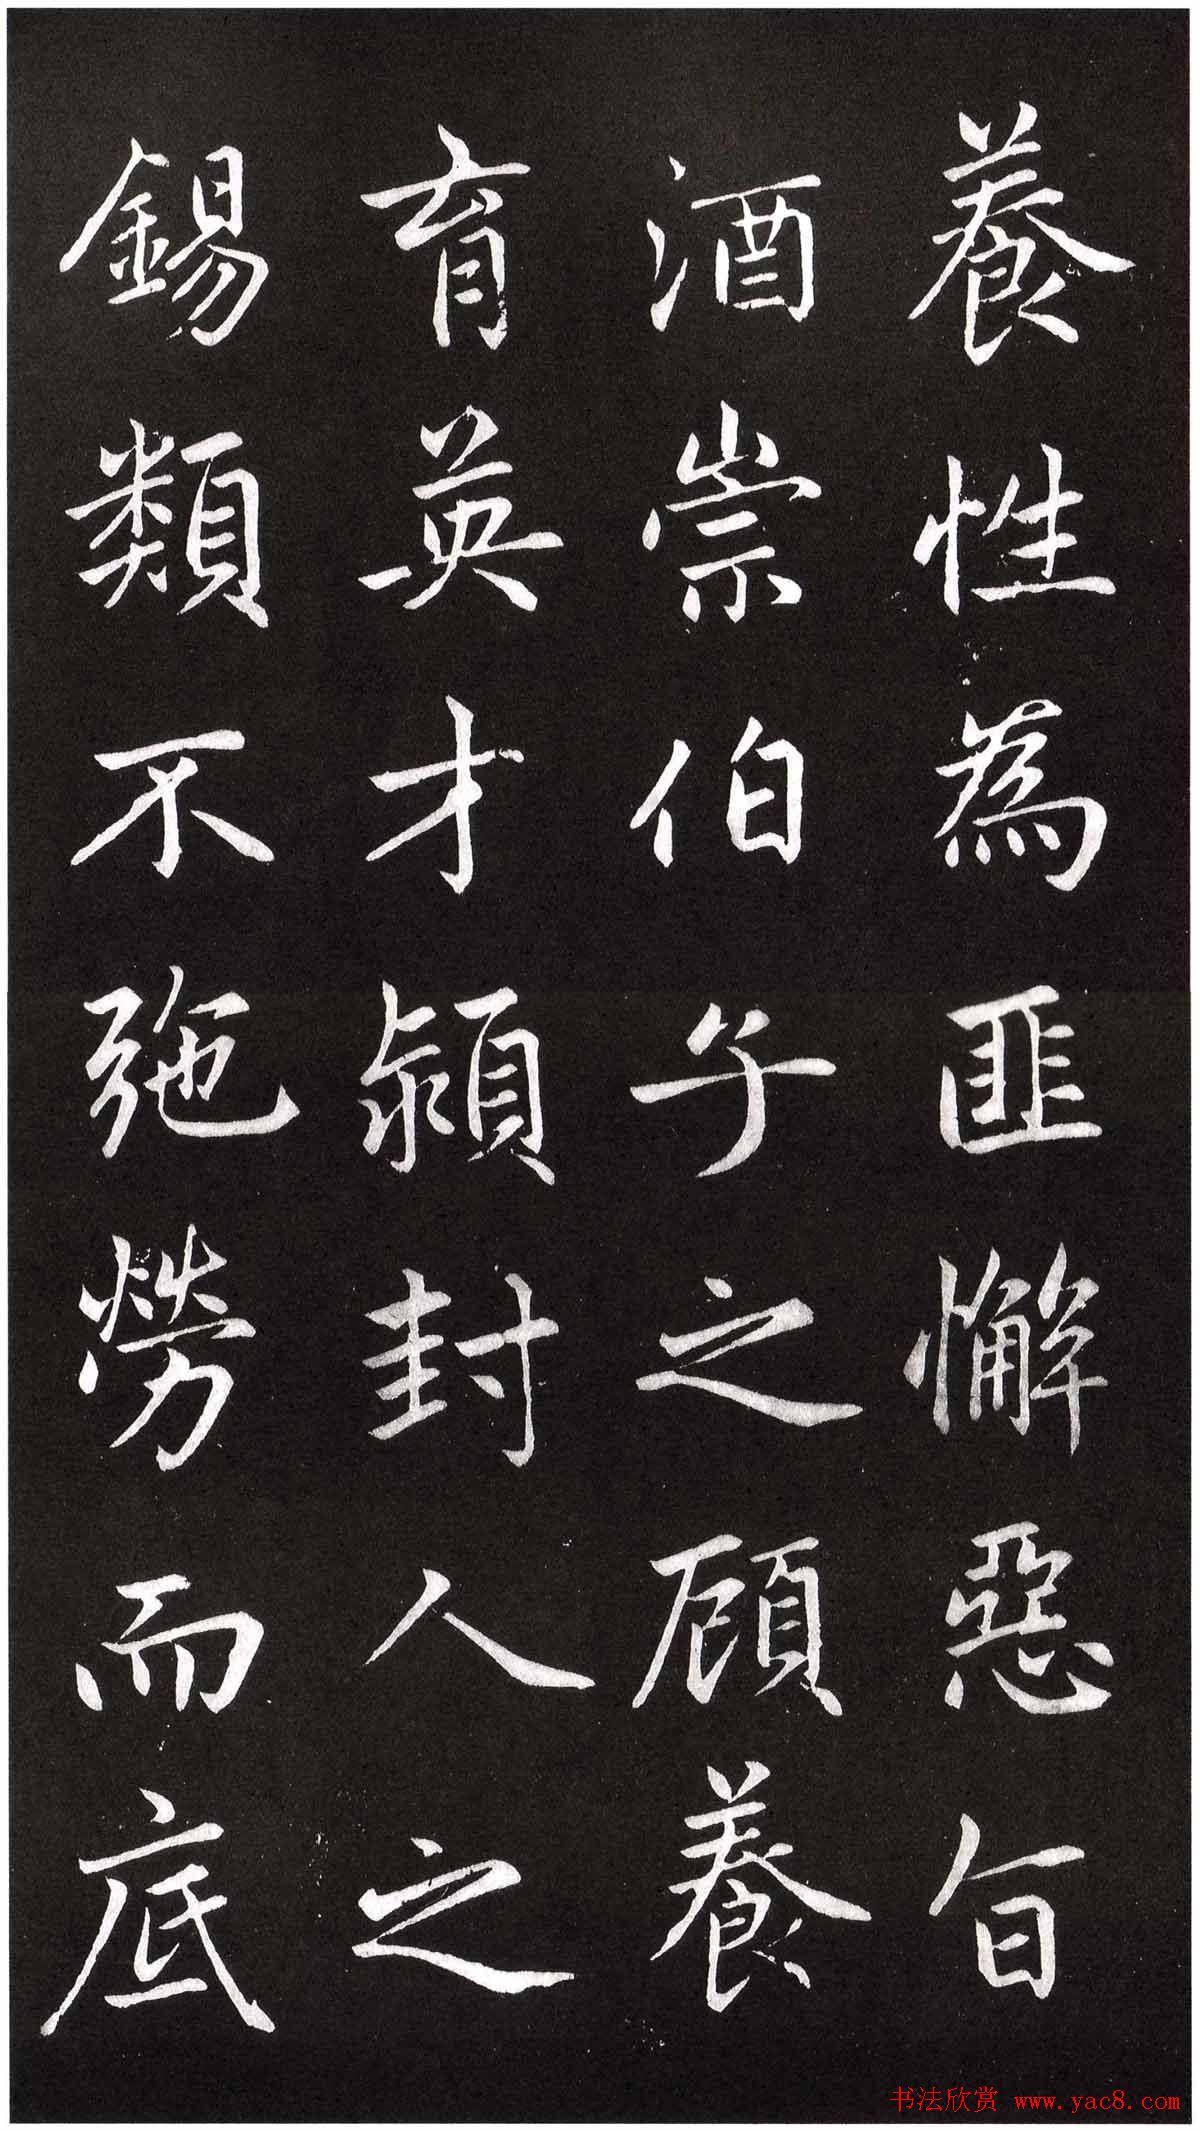 養性為匪懈惡旨
酒崇伯子之顧養
育英才潁封人之
錫類不弛勞而底
书法欣赏 www.yac8.com